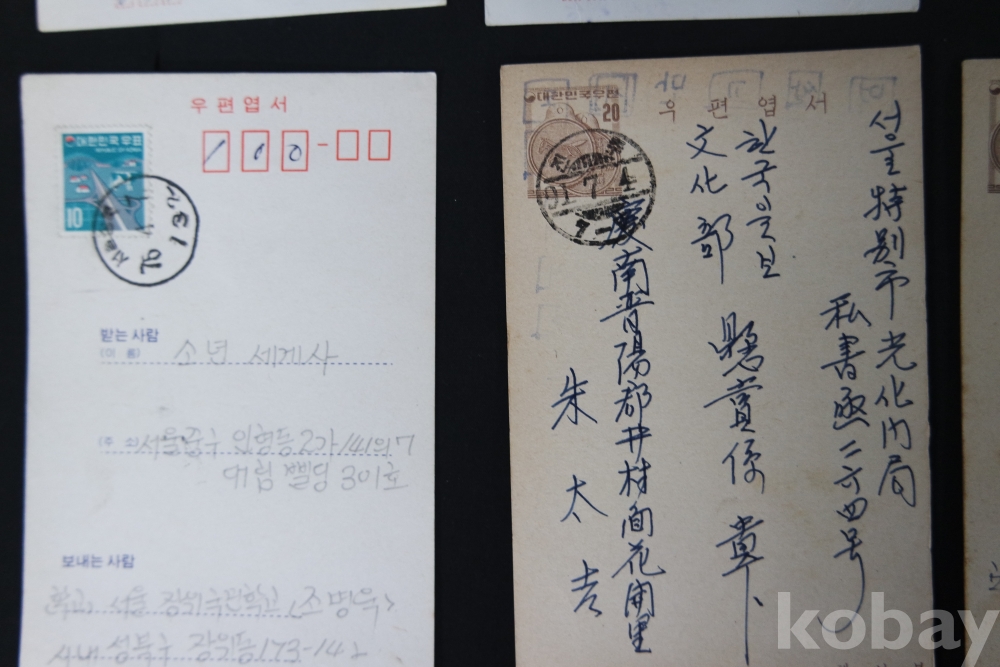 우편엽서
대한민국우표
REPUBLIC OF KOREA
10
100-
받는 사람
(이 름)
소년 세계사
(주 소)
서울중구 인현동2가 141의 7
대림 삘딩 301호
보내는 사람
학교 서울 장위국민학교 (조명욱)
시내 성북구 장위동 173-142
우편엽서
대한민국우표
20
7 4
서울特別市光化门局
私書函二六四号
한국일보
文化部 懸賞係
慶南晋陽郡井村面花開里
朱太吉
kobay